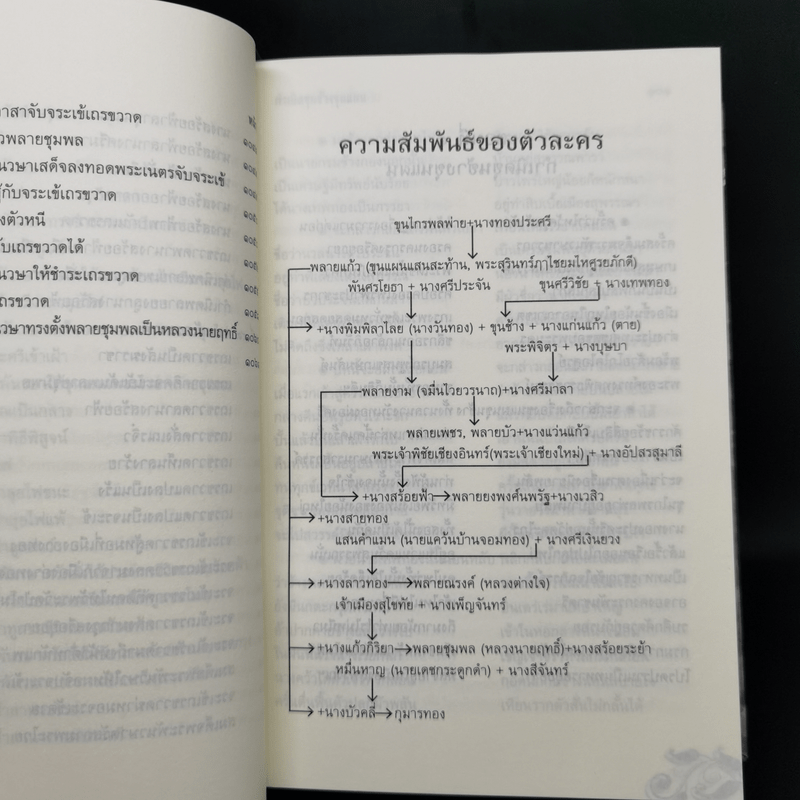 าสาจับจระเข้เถรขวาด
วพลายชุมพล
นวษาเสด็จลงทอดพระเนตรจับจระเข้
ู้กับจระเข้เถรขวาด
งตัวหนี
ับเถรขวาดได้
นวษาให้ชำระเถรขวาด
ถรขวาด
นวษาทรงตั้งพลายชุมพลเป็นหลวงนายฤทธิ์
ความสัมพันธ์ของตัวละคร
ขุนไกรพลพ่าย+นางทองประศรี
พลายแก้ว (ขุนแผนแสนสะท้าน, พระสุรินทร์ฦๅไชยมไหศูรยภักดี)
พันศรโยธา + นางศรีประจัน
ขุนศรีวิชัย + นางเทพทอง
+นางพิมพิลาไลย (นางวันทอง) + ขุนช้าง + นางแก่นแก้ว (ตาย)
พระพิจิตร + นางบุษบา
พลายงาม (จมื่นไวยวรนาถ)+นางศรีมาลา
พลายเพชร, พลายบัว+นางแว่นแก้ว
พระเจ้าพิชัยเชียงอินทร์(พระเจ้าเชียงใหม่) + นางอัปสรสุมาลี
+นางสร้อยฟ้า พลายยงพงศ์นพรัฐ+นางเวสิว
+นางสายทอง
แสนคำแมน (นายแคว้นบ้านจอมทอง) + นางศรีเงินยวง
+นางลาวทอง พลายณรงค์ (หลวงต่างใจ)
เจ้าเมืองสุโขทัย + นางเพ็ญจันทร์
+นางแก้วกิริยา พลายชุมพล (หลวงนายฤทธิ์)+นางสร้อยระย้า
หมื่นหาญ (นายเดชกระดูกดำ) + นางสีจันทร์
+นางบัวคลี่ กุมารทอง